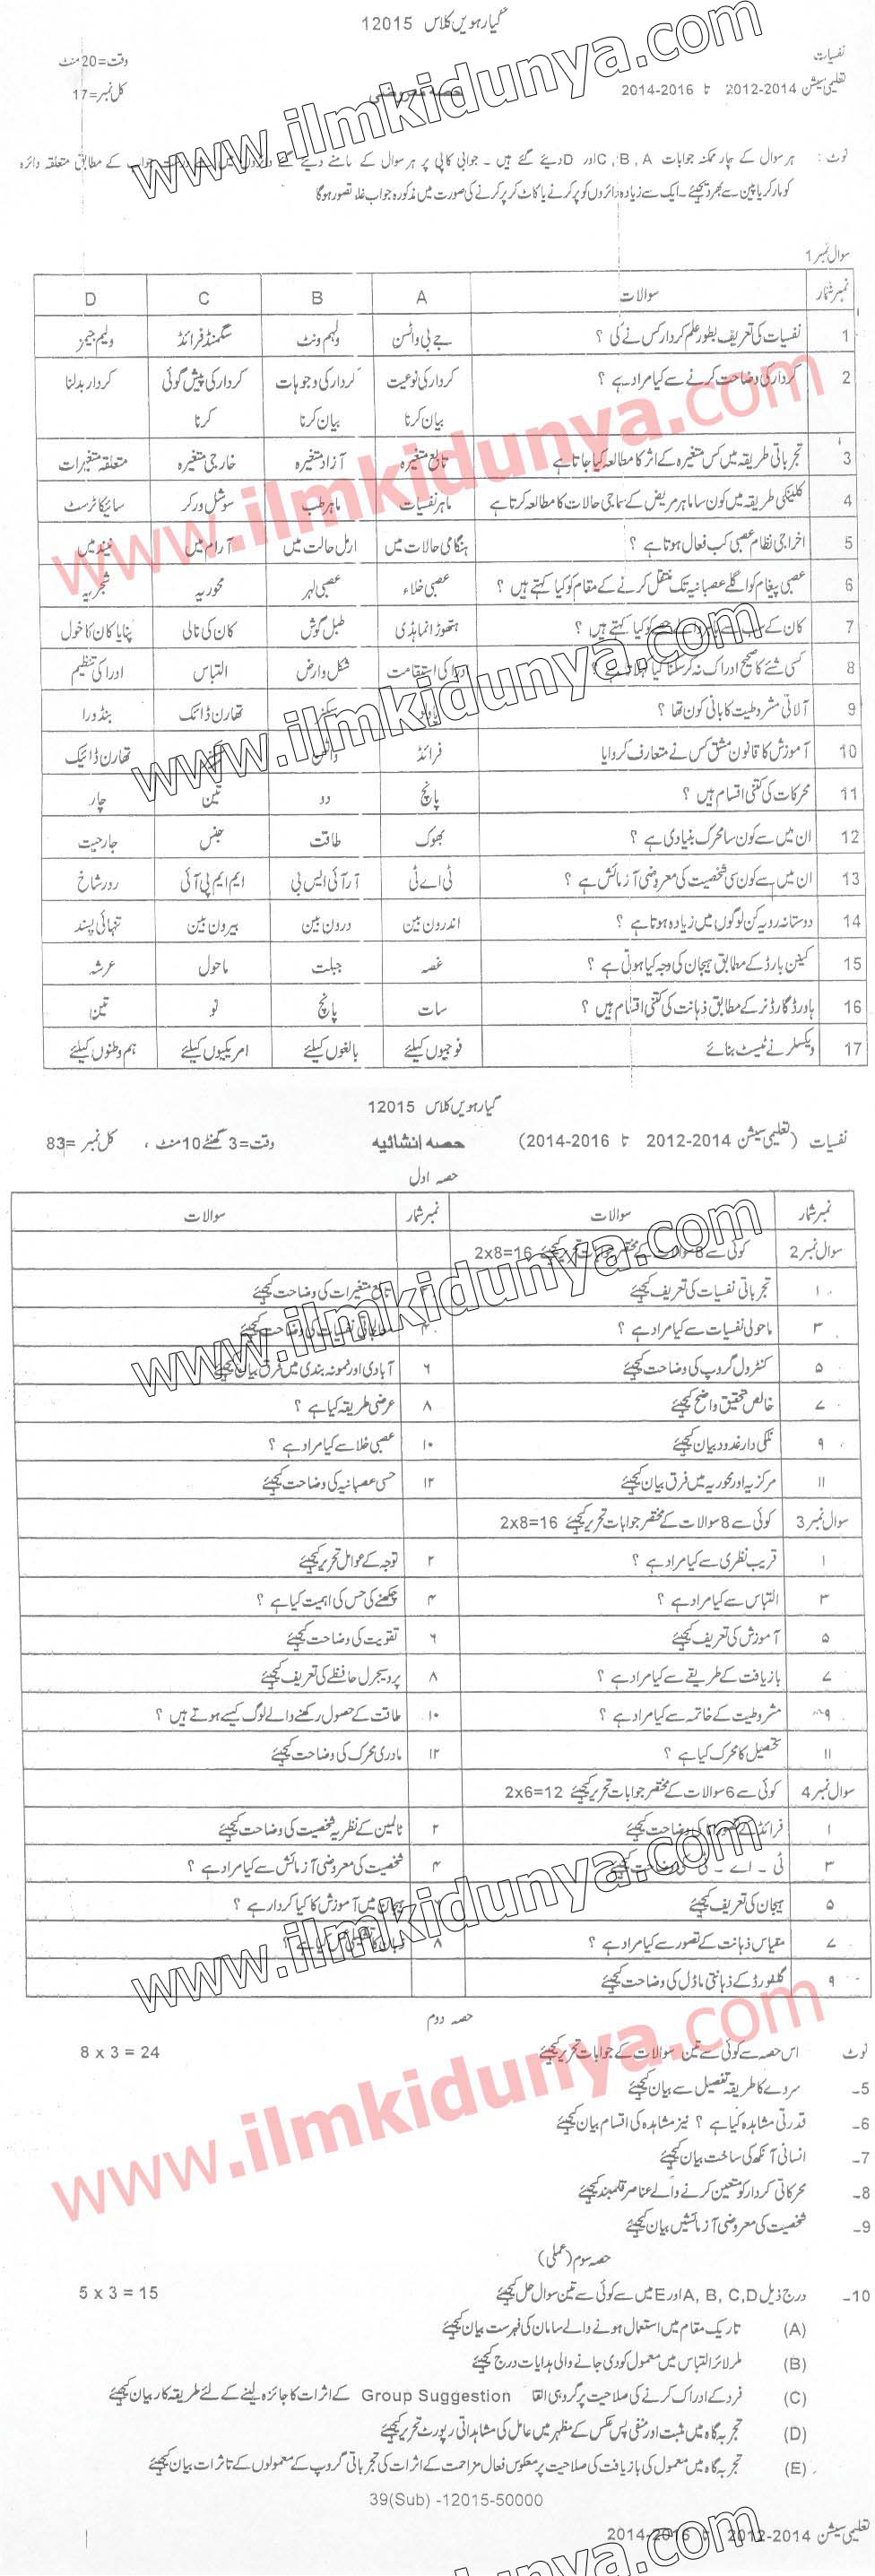 گیارہویں کلاس 12015
نفسیات
وقت=20منٹ
تعلیمی سیشن 2014-2012 تا 2016-2014
کل نمبر=17
www.ilmkidunya.com
نوٹ : ہر سوال کے چار ممکنہ جوابات C, B, A اور D دیئے گئے ہیں۔ جوابی کاپی پر ہر سوال کے سامنے دیئے گئے دائروں میں سے درست جواب کے مطابق متعلقہ دائرہ
کو مارکر یا پین سے بھر دیجئے۔ ایک سے زیادہ دائروں کو پر کرنے یا کاٹ کر پر کرنے کی صورت میں مذکورہ جواب غلط تصور ہوگا
سوال نمبر 1
نمبر شمار سوالات A B C D
1 نفسیات کی تعریف بطور علم کردار کس نے کی ؟ جے بی واٹسن ولہم ونٹ سگمنڈ فرائڈ ولیم جیمز
2 کردار کی وضاحت کرنے سے کیا مراد ہے ؟ کردار کی نوعیت بیان کرنا کردار کی وجوہات بیان کرنا کردار کی پیش گوئی کرنا کردار بدلنا
3 تجرباتی طریقہ میں کس متغیرہ کے اثر کا مطالعہ کیا جاتا ہے تابع متغیرہ آزاد متغیرہ خارجی متغیرہ متعلقہ متغیرات
4 کلینکی طریقہ میں کون سا ماہر مریض کے سماجی حالات کا مطالعہ کرتا ہے ماہر نفسیات ماہر طب سوشل ورکر سائیکاٹرسٹ
www.ilmkidunya.com
5 اخراجی نظام عصبی کب فعال ہوتا ہے ؟ ہنگامی حالات میں نارمل حالت میں آرام میں نیند میں
6 عصبی پیغام کو اگلے عصبانیہ تک منتقل کرنے کے مقام کو کیا کہتے ہیں ؟ عصبی خلاء عصبی لہر محوریہ شجریہ
7 کان کے سب سے کو کیا کہتے ہیں ؟ ہتھوڑا نما ہڈی طبل گوش کان کی نالی پنا یا کان کا خول
8 کسی شئے کا صحیح ادراک نہ کر سکنا کیا کہلاتا ہے ؟ ادراکی استقامت شکل و ارض التباس ادراکی تنظیم
9 آلاتی مشروطیت کا بانی کون تھا ؟ تھارن ڈائک بنڈورا
www.ilmkidunya.com
10 آموزش کا قانون مشق کس نے متعارف کروایا فرائڈ واٹسن تھارن ڈائیک
11 محرکات کی کتنی اقسام ہیں ؟ پانچ دو تین چار
12 ان میں سے کون سا محرک بنیادی ہے ؟ بھوک طاقت جنس جارحیت
13 ان میں سے کون سی شخصیت کی معروضی آزمائش ہے ؟ ٹی اے ٹی آر آئی ایس بی ایم ایم پی آئی رورشاخ
14 دوستانہ رویہ کن لوگوں میں زیادہ ہوتا ہے ؟ اندرون بین درون بین بیرون بین تنہائی پسند
15 کینن بارڈ کے مطابق ہیجان کی وجہ کیا ہوتی ہے ؟ غصہ جبلت ماحول عرشہ
16 ہاورڈ گارڈنر کے مطابق ذہانت کی کتنی اقسام ہیں ؟ سات پانچ نو تین
17 ویکسلر نے ٹیسٹ بنائے فوجیوں کیلئے بالغوں کیلئے امریکیوں کیلئے ہم وطنوں کیلئے
گیارہویں کلاس 12015
نفسیات (تعلیمی سیشن 2014-2012 تا 2016-2014) حصہ انشائیہ وقت=3 گھنٹے 10 منٹ ، کل نمبر =83
حصہ اول
نمبر شمار سوالات نمبر شمار سوالات
سوال نمبر 2 کوئی سے 8 سوالات کے مختصر جوابات تحریر کیجئے 2x8=16
۱ تجرباتی نفسیات کی تعریف کیجئے ۲ تابع متغیرات کی وضاحت کیجئے
۳ ماحولی نفسیات سے کیا مراد ہے ؟ ۴ نفسیات کی وضاحت کیجئے
www.ilmkidunya.com
۵ کنٹرول گروپ کی وضاحت کیجئے ۶ آبادی اور نمونہ بندی میں فرق بیان کیجئے
۷ خالص تحقیق واضح کیجئے ۸ عرضی طریقہ کیا ہے ؟
۹ نلکی دار غدود بیان کیجئے ۱۰ عصبی خلا سے کیا مراد ہے ؟
۱۱ مرکزیہ اور محوریہ میں فرق بیان کیجئے ۱۲ حسی عصبانیہ کی وضاحت کیجئے
سوال نمبر 3 کوئی سے 8 سوالات کے مختصر جوابات تحریر کیجئے 2x8=16
۱ قریب نظری سے کیا مراد ہے ؟ ۲ توجہ کے عوامل تحریر کیجئے
۳ التباس سے کیا مراد ہے ؟ ۴ چکھنے کی حس کی اہمیت کیا ہے ؟
۵ آموزش کی تعریف کیجئے ۶ تقویت کی وضاحت کیجئے
۷ بازیافت کے طریقے سے کیا مراد ہے ؟ ۸ پروسیجرل حافظے کی تعریف کیجئے
۹ مشروطیت کے خاتمہ سے کیا مراد ہے ؟ ۱۰ طاقت کے حصول رکھنے والے لوگ کیسے ہوتے ہیں ؟
۱۱ تحصیل کا محرک کیا ہے ؟ ۱۲ مادری محرک کی وضاحت کیجئے
سوال نمبر 4 کوئی سے 6 سوالات کے مختصر جوابات تحریر کیجئے 2x6=12
۱ فرائڈ کے کی وضاحت کیجئے ۲ ٹالمین کے نظریہ شخصیت کی وضاحت کیجئے
۳ ٹی ۔ اے ۔ ٹی کی وضاحت کیجئے ۴ شخصیت کی معروضی آزمائش سے کیا مراد ہے ؟
www.ilmkidunya.com
۵ ہیجان کی تعریف کیجئے ۶ ہیجان میں آموزش کا کیا کردار ہے ؟
۷ مقیاس ذہانت کے تصور سے کیا مراد ہے ؟ ۸ کیا ہے ؟
۹ گلفورڈ کے ذہانتی ماڈل کی وضاحت کیجئے
حصہ دوم
نوٹ اس حصہ سے کوئی سے تین سوالات کے جوابات تحریر کیجئے 8 x 3 = 24
www.ilmkidunya.com
5- سروے کا طریقہ تفصیل سے بیان کیجئے
6- قدرتی مشاہدہ کیا ہے ؟ نیز مشاہدہ کی اقسام بیان کیجئے
7- انسانی آنکھ کی ساخت بیان کیجئے
8- محرکاتی کردار کو متعین کرنے والے عناصر قلمبند کیجئے
9- شخصیت کی معروضی آزمائشیں بیان کیجئے
حصہ سوم (عملی)
10- درج ذیل A, B, C,D اور E میں سے کوئی سے تین سوال حل کیجئے 5 x 3 = 15
(A) تاریک مقام میں استعمال ہونے والے سامان کی فہرست بیان کیجئے
(B) ملر لائر التباس میں معمول کو دی جانے والی ہدایات درج کیجئے
(C) فرد کے ادراک کرنے کی صلاحیت پر گروہی القا Group Suggestion کے اثرات کا جائزہ لینے کے لئے طریقہ کار بیان کیجئے
(D) تجربہ گاہ میں مثبت اور منفی پس عکس کے مظہر میں عامل کی مشاہداتی رپورٹ تحریر کیجئے
(E) تجربہ گاہ میں معمول کی بازیافت کی صلاحیت پر معکوس فعال مزاحمت کے اثرات کی تجرباتی گروپ کے معمولوں کے تاثرات بیان کیجئے
39(Sub) -12015-50000
تعلیمی سیشن 2014-2012 تا 2016-2014
www.ilmkidunya.com